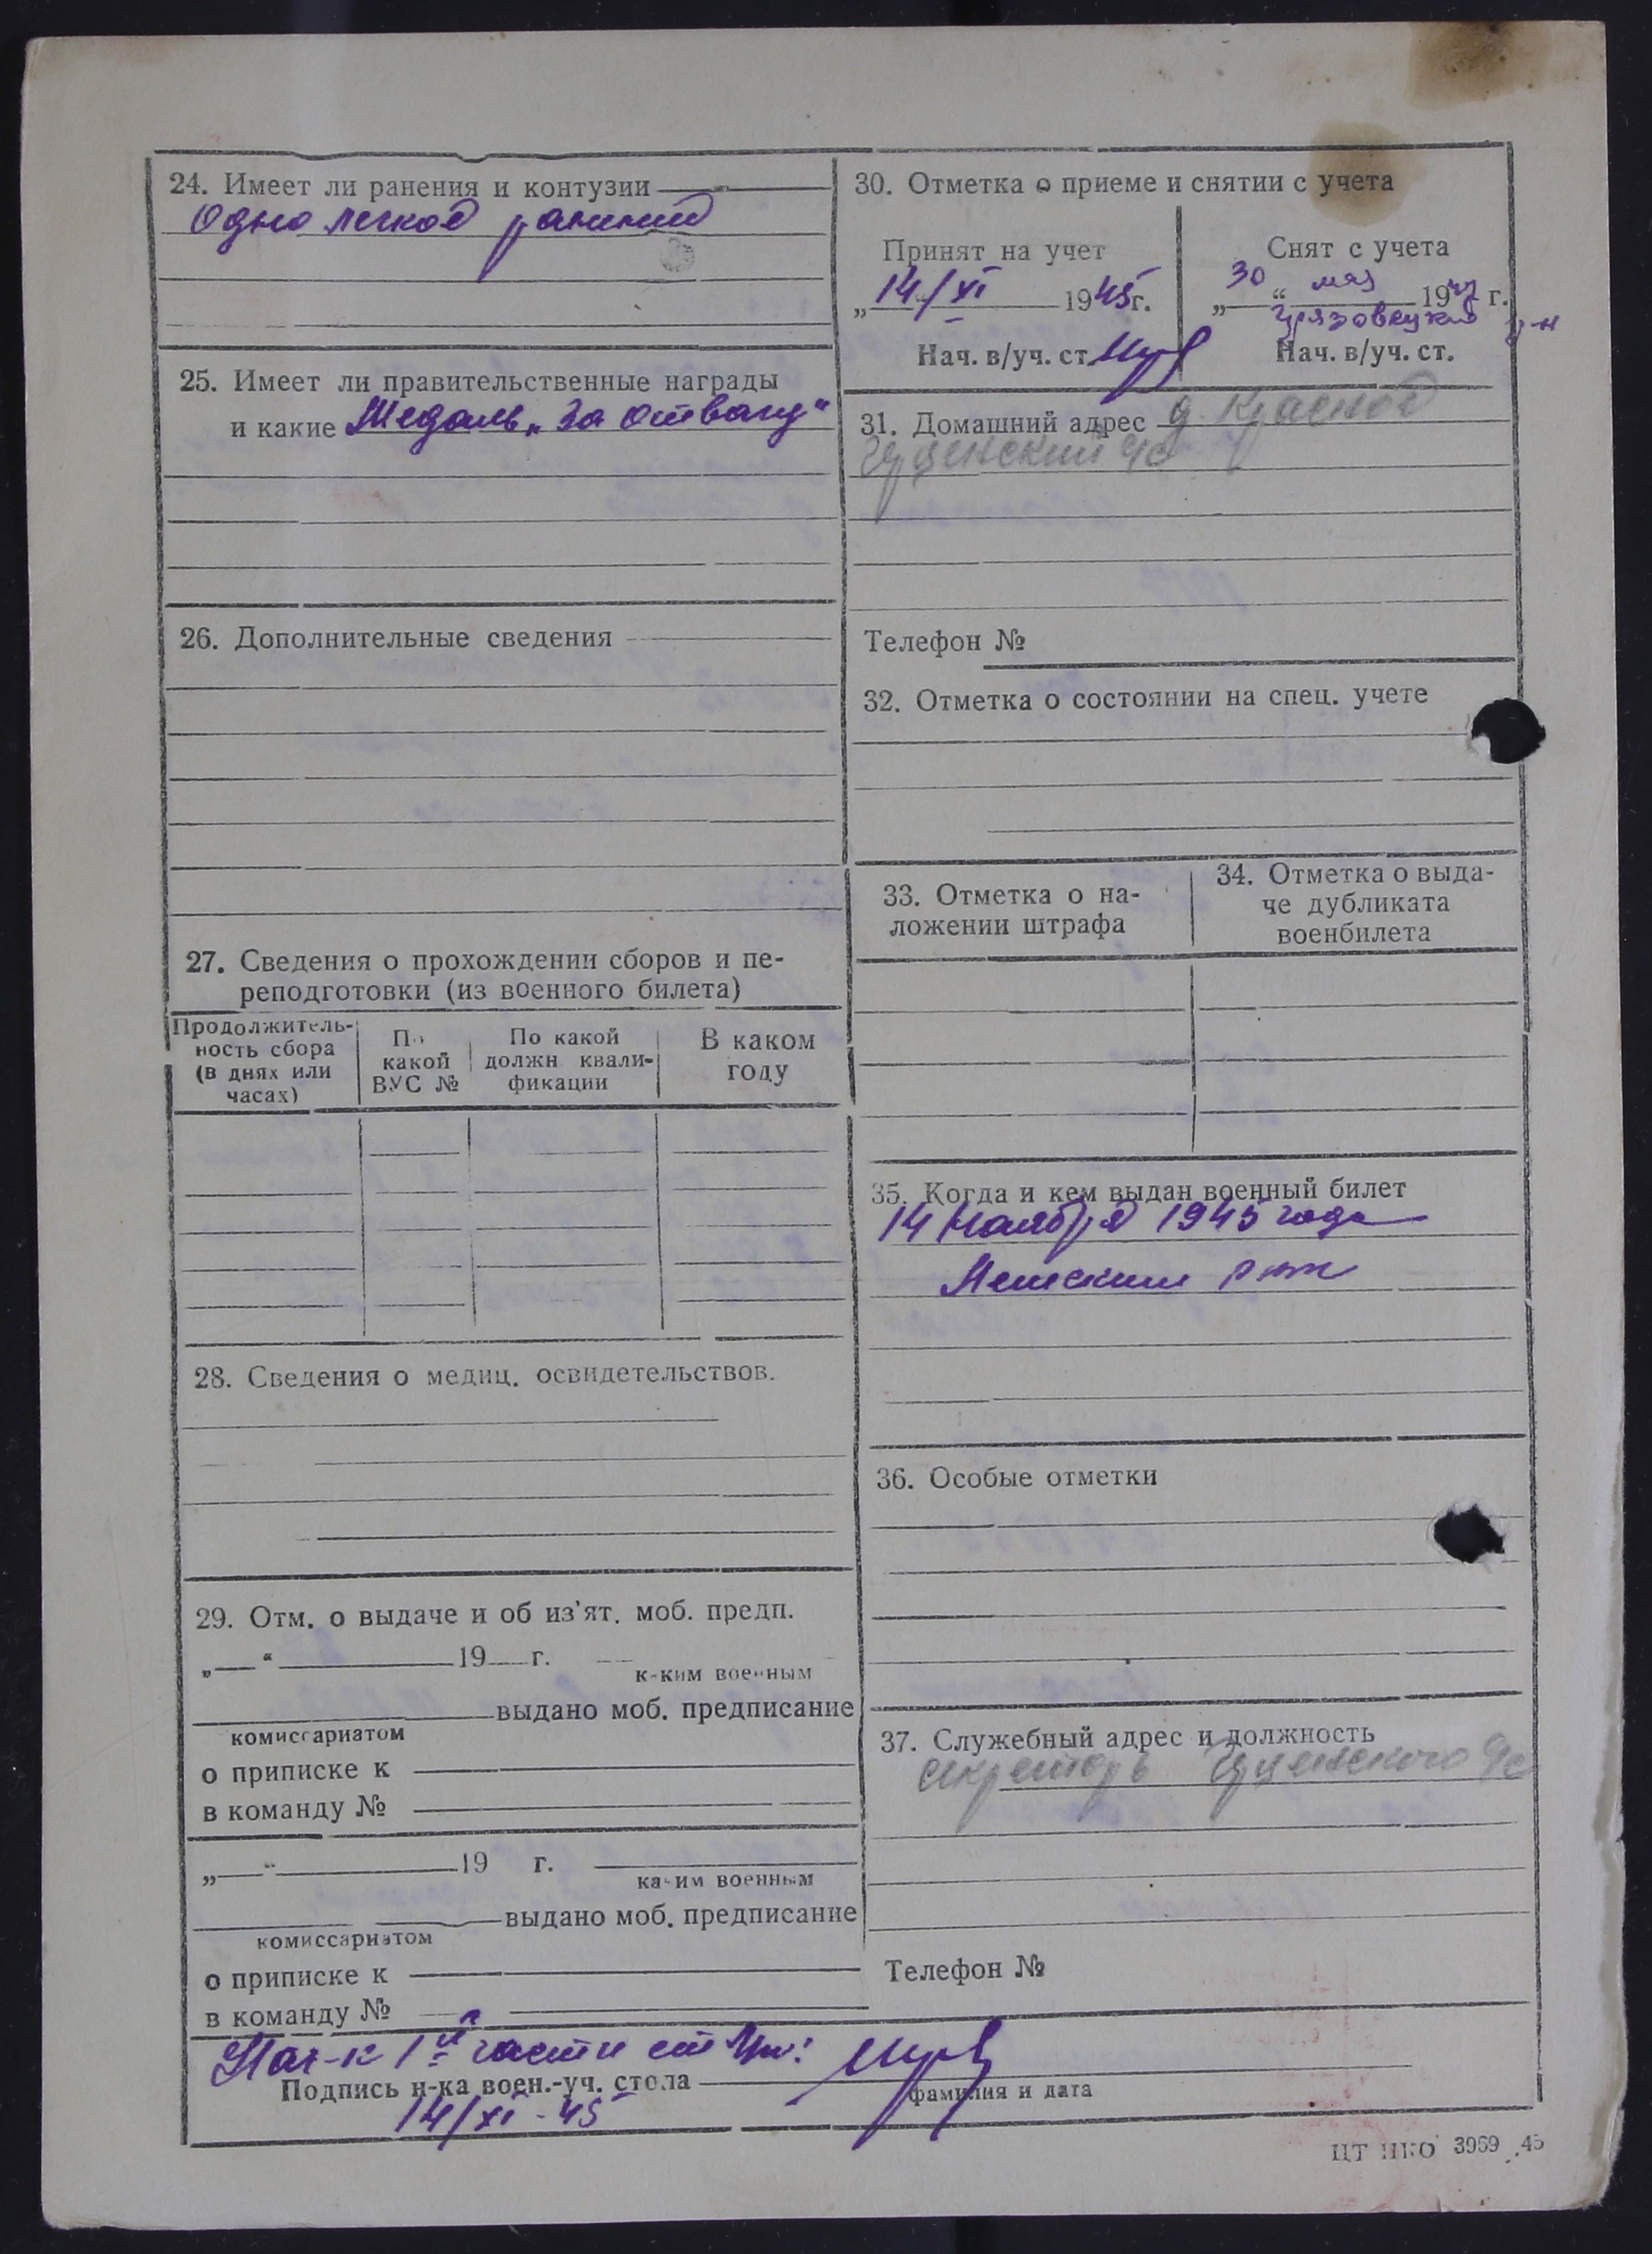 24. Имеет ли ранения и контузии
Одно легкое ранение
25. Имеет ли правительственные награды
и какие Медаль „За отвагу"
26. Дополнительные сведения
27. Сведения о прохождении сборов и пе-
реподготовки (из военного билета)
Продолжитель-
ность сбора
(в днях или
часах)
По
какой
ВУС №
По какой
должн. квали-
фикации
В каком
году
28. Сведения о медиц. освидетельствов.
29. Отм. о выдаче и об из'ят. моб. предп.
„ “ 19 г.
каким военным
выдано моб. предписание
комиссариатом
о приписке к
в команду №
„ “ 19 г.
каким военным
выдано моб. предписание
комиссариатом
о приписке к
в команду №
30. Отметка о приеме и снятии с учета
Принят на учет
„14/XI 1945г.
Нач. в/уч. ст.
Снят с учета
„30“ мая 1947 г.
Грязовецкий р-н
Нач. в/уч. ст.
31. Домашний адрес д. Красное
с/с
Телефон №
32. Отметка о состоянии на спец. учете
33. Отметка о на-
ложении штрафа
34. Отметка о выда-
че дубликата
военбилета
35. Когда и кем выдан военный билет
14 Ноября 1945 года
36. Особые отметки
37. Служебный адрес и должность
секретарь с/с
Телефон №
Нач-к 1й части
Подпись н-ка воен.-уч. стола
фамилия и дата
14/XI-45
ЦТ НКО 3969 .45